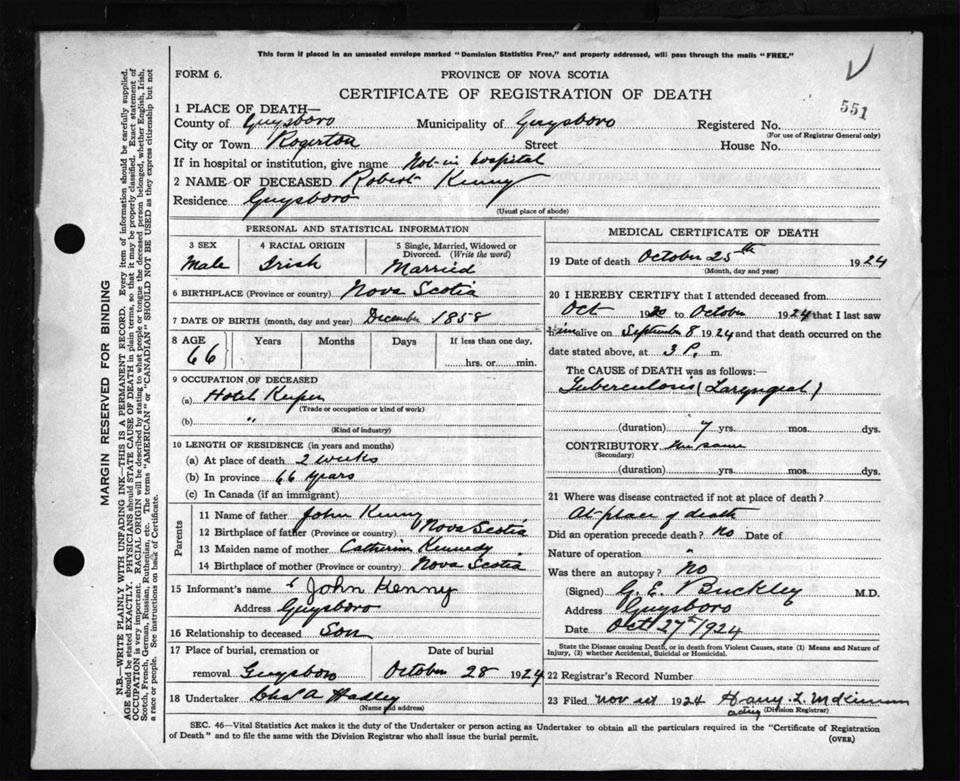 This form if placed in an unsealed envelope marked "Dominion Statistics Free," and property addressed, will pass through the mails "FREE."
FORM 6.
PROVINCE OF NOVA SCOTIA
CERTIFICATE OF REGISTRATION OF DEATH
551
1 PLACE OF DEATH—
County of Guysboro Municipality of Guysboro Registered No.
(For use of Registrar General only)
City or Town Rogerton Street House No.
If in hospital or institution, give name Not in hospital
2 NAME OF DECEASED Robert Kenny
Residence Guysboro
(Usual place of abode)
PERSONAL AND STATISTICAL INFORMATION
3 SEX 4 RACIAL ORIGIN 5 Single, Married, Widowed or Divorced. (Write the word)
Male Irish Married
6 BIRTHPLACE (Province or country) Nova Scotia
7 DATE OF BIRTH (month, day and year) December 1858
8 AGE Years Months Days If less than one day,
66 hrs. or min.
9 OCCUPATION OF DECEASED
(a) Hotel Keeper
(Trade or occupation or kind of work)
(b) "
(Kind of industry)
10 LENGTH OF RESIDENCE (in years and months)
(a) At place of death 2 weeks
(b) In province 66 years
(c) In Canada (if an immigrant)
Parents
11 Name of father John Kenny
12 Birthplace of father (Province or country) Nova Scotia
13 Maiden name of mother Catherine Kennedy
14 Birthplace of mother (Province or country) Nova Scotia
15 Informant's name John Kenny
Address Guysboro
16 Relationship to deceased Son
17 Place of burial, cremation or Date of burial
removal Guysboro October 28 1924
18 Undertaker Chas A Hadley
(Name and address)
MEDICAL CERTIFICATE OF DEATH
19 Date of death October 25th 1924
(Month, day and year)
20 I HEREBY CERTIFY that I attended deceased from
Oct 1920 to October 1924 that I last saw
him alive on September 8 1924 and that death occurred on the
date stated above, at 3 P. m.
The CAUSE OF DEATH was as follows:—
Tuberculosis (Laryngeal)
(duration) 7 yrs. mos. dys.
CONTRIBUTORY the same
(Secondary)
(duration) yrs. mos. dys.
21 Where was disease contracted if not at place of death?
At place of death
Did an operation precede death? No Date of
Nature of operation "
Was there an autopsy? No
(Signed) G. E. Buckley M.D.
Address Guysboro
Date Oct 27th 1924
State the Disease causing Death, or in death from Violent Causes, state (1) Means and Nature of
Injury, (2) whether Accidental, Suicidal or Homicidal.
22 Registrar's Record Number
23 Filed Nov 1st 1924 Harry L. McKinnon
acting (Division Registrar)
SEC. 46—Vital Statistics Act makes it the duty of the Undertaker or person acting as Undertaker to obtain all the particulars required in the "Certificate of Registration
of Death" and to file the same with the Division Registrar who shall issue the burial permit.
(OVER)
MARGIN RESERVED FOR BINDING
N.B.—WRITE PLAINLY WITH UNFADING INK—THIS IS A PERMANENT RECORD. Every item of information should be carefully supplied.
AGE should be stated EXACTLY. PHYSICIANS should STATE CAUSE OF DEATH in plain terms, so that it may be properly classified. Exact statement of
OCCUPATION is very important. RACIAL ORIGIN will be described by stating to what people or tongue the deceased person belonged, whether English, Irish,
Scotch, French, German, Russian, Ruthenian, etc. The terms "AMERICAN" or "CANADIAN" SHOULD NOT BE USED as they express citizenship but not
a race or people. See instructions on back of Certificate.